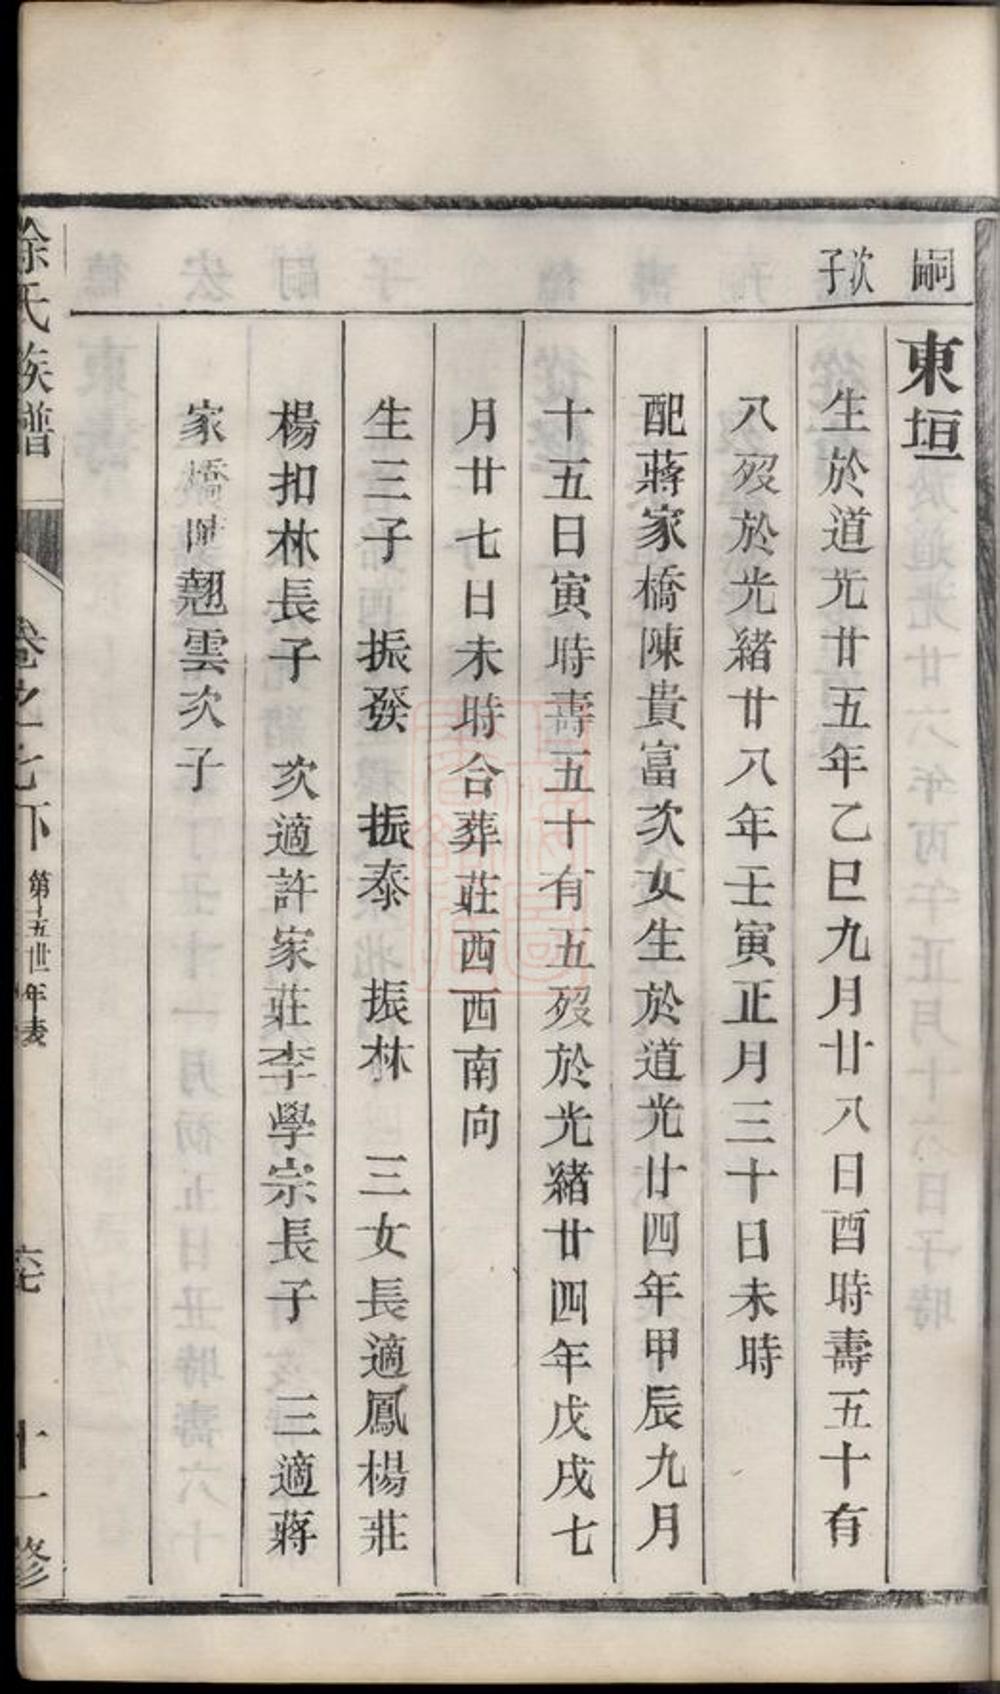 嗣
次子
東垣
生於道光廿五年乙巳九月廿八日酉時壽五十有
八歿於光緒廿八年壬寅正月三十日未時
配蔣家橋陳貴富次女生於道光廿四年甲辰九月
十五日寅時壽五十有五歿於光緒廿四年戊戌七
月廿七日未時合葬莊西西南向
生三子 振發 振泰 振林 三女長適鳳楊莊
楊扣林長子 次適許家莊李學宗長子 三適蔣
家橋陳翹雲次子
徐氏族譜
卷之七下 第十五世年表
十一修